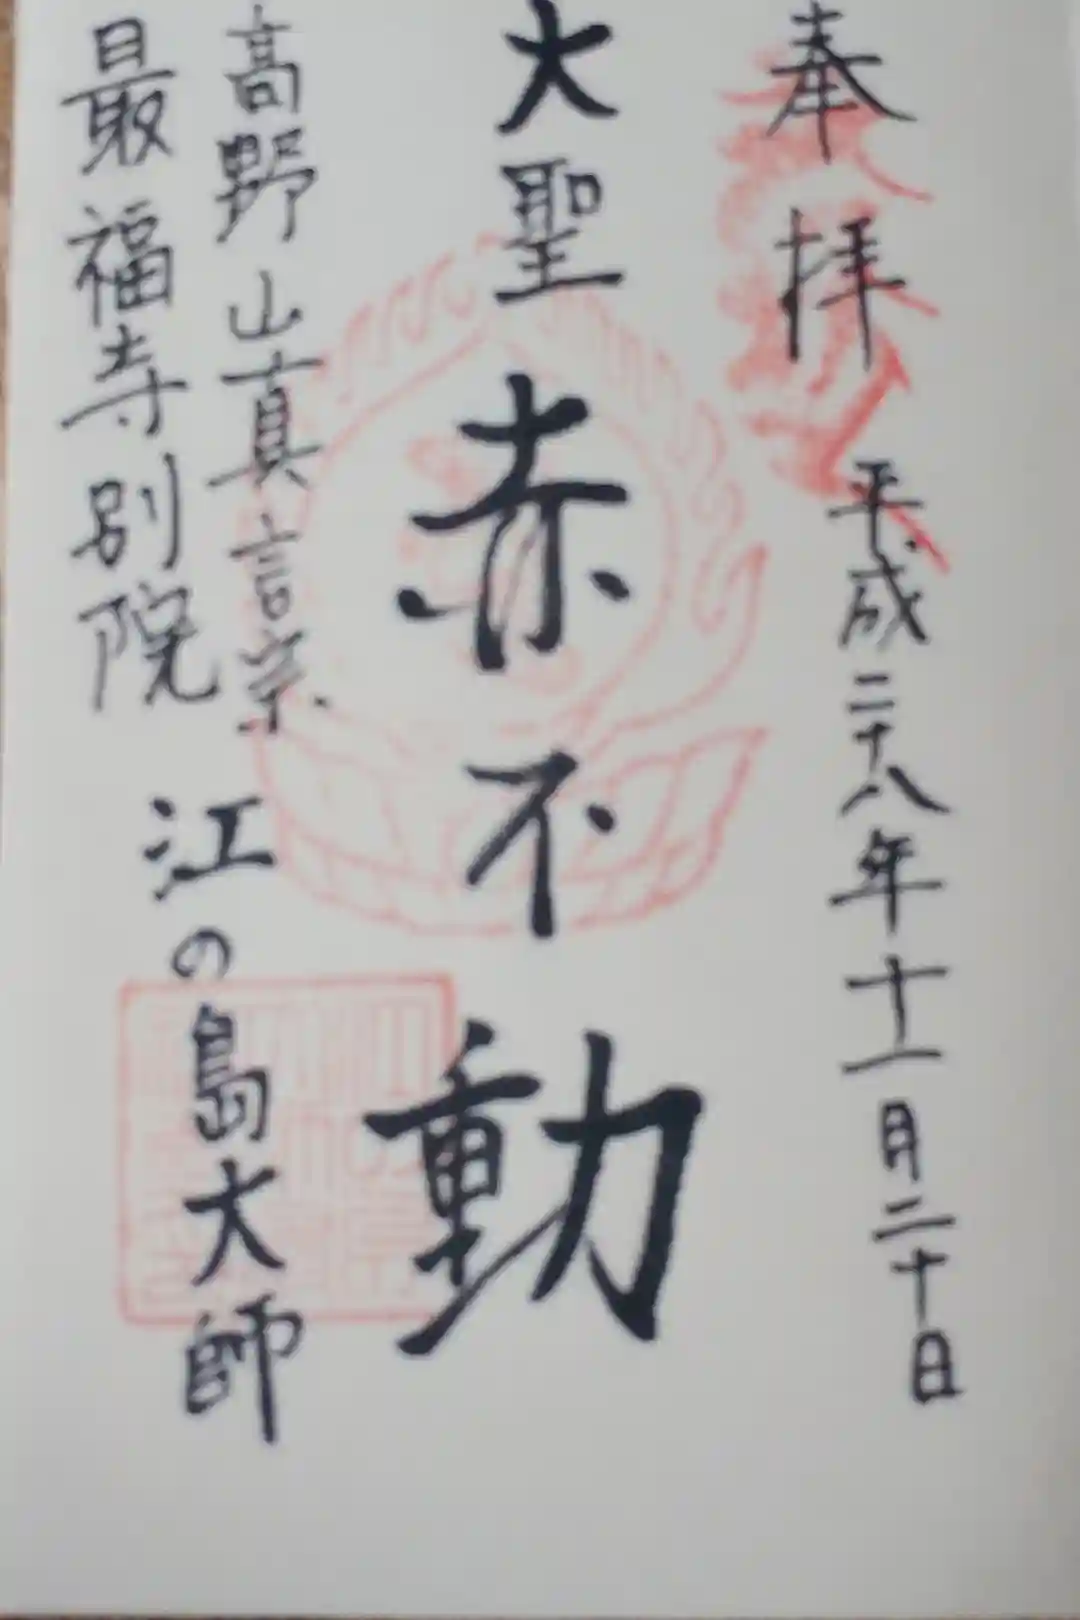 奉拝
平成二十八年十一月二十日
大聖赤不動
高野山真言宗
最福寺別院
江の島大師